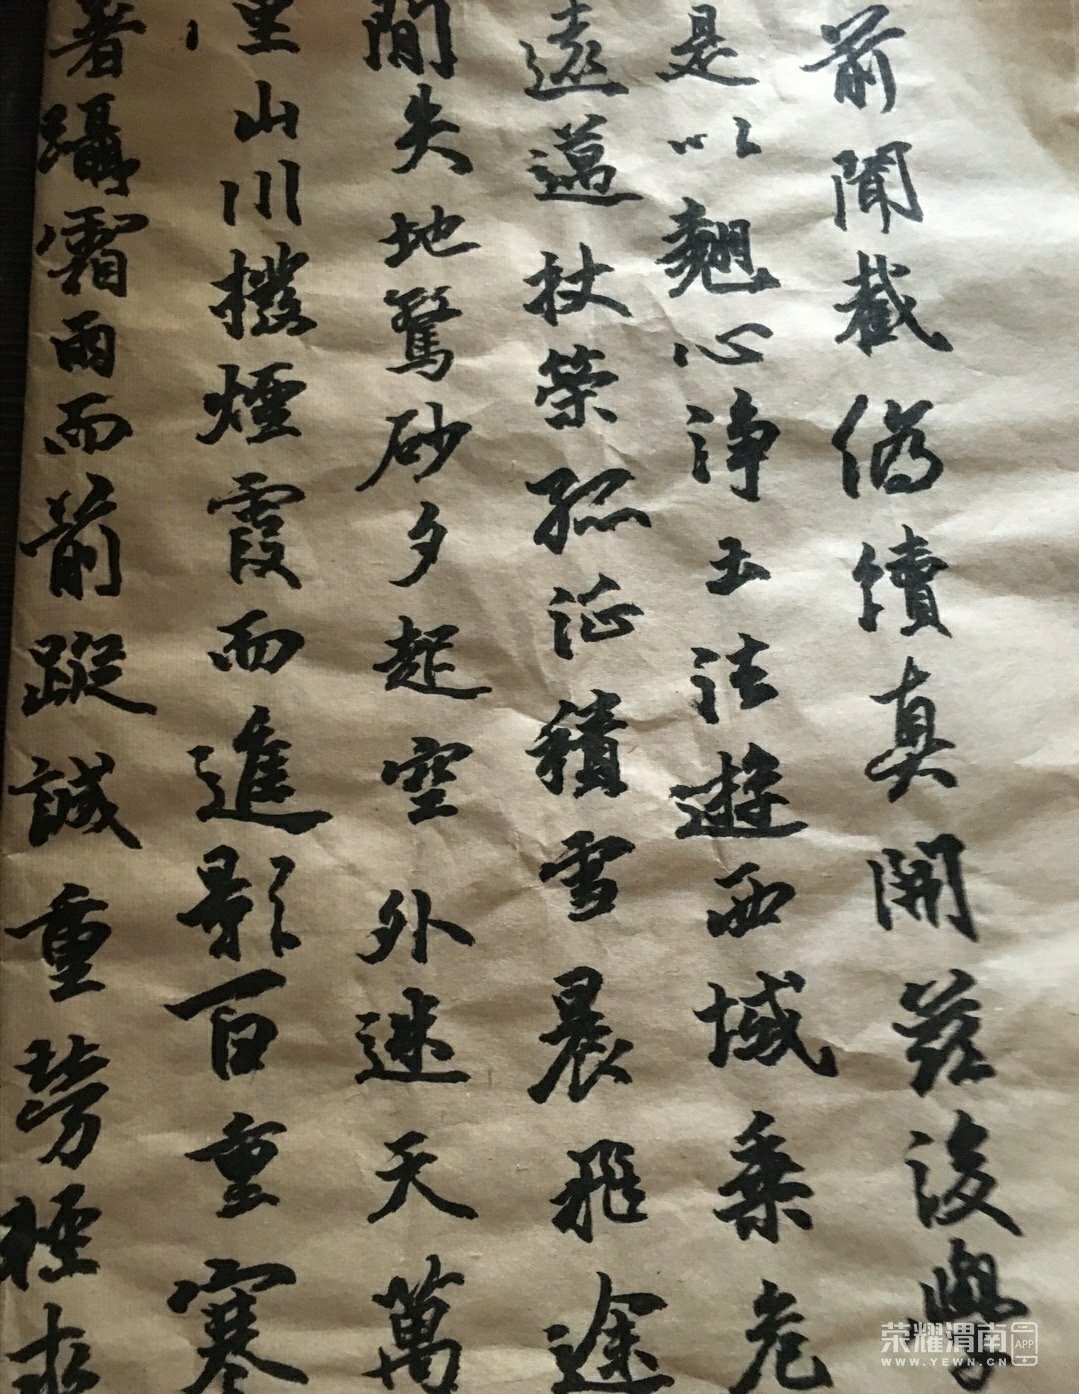 前聞截偽續真開茲後學
是以翹心淨土法遊西域乘危
遠邁杖策孤征積雪晨飛途
閒失地驚砂夕起空外迷天萬
里山川撥煙霞而進影百重寒
暑躡霜雨而前蹤誠重勞輕求
荣耀渭南APP
WWW.YEWN.CN